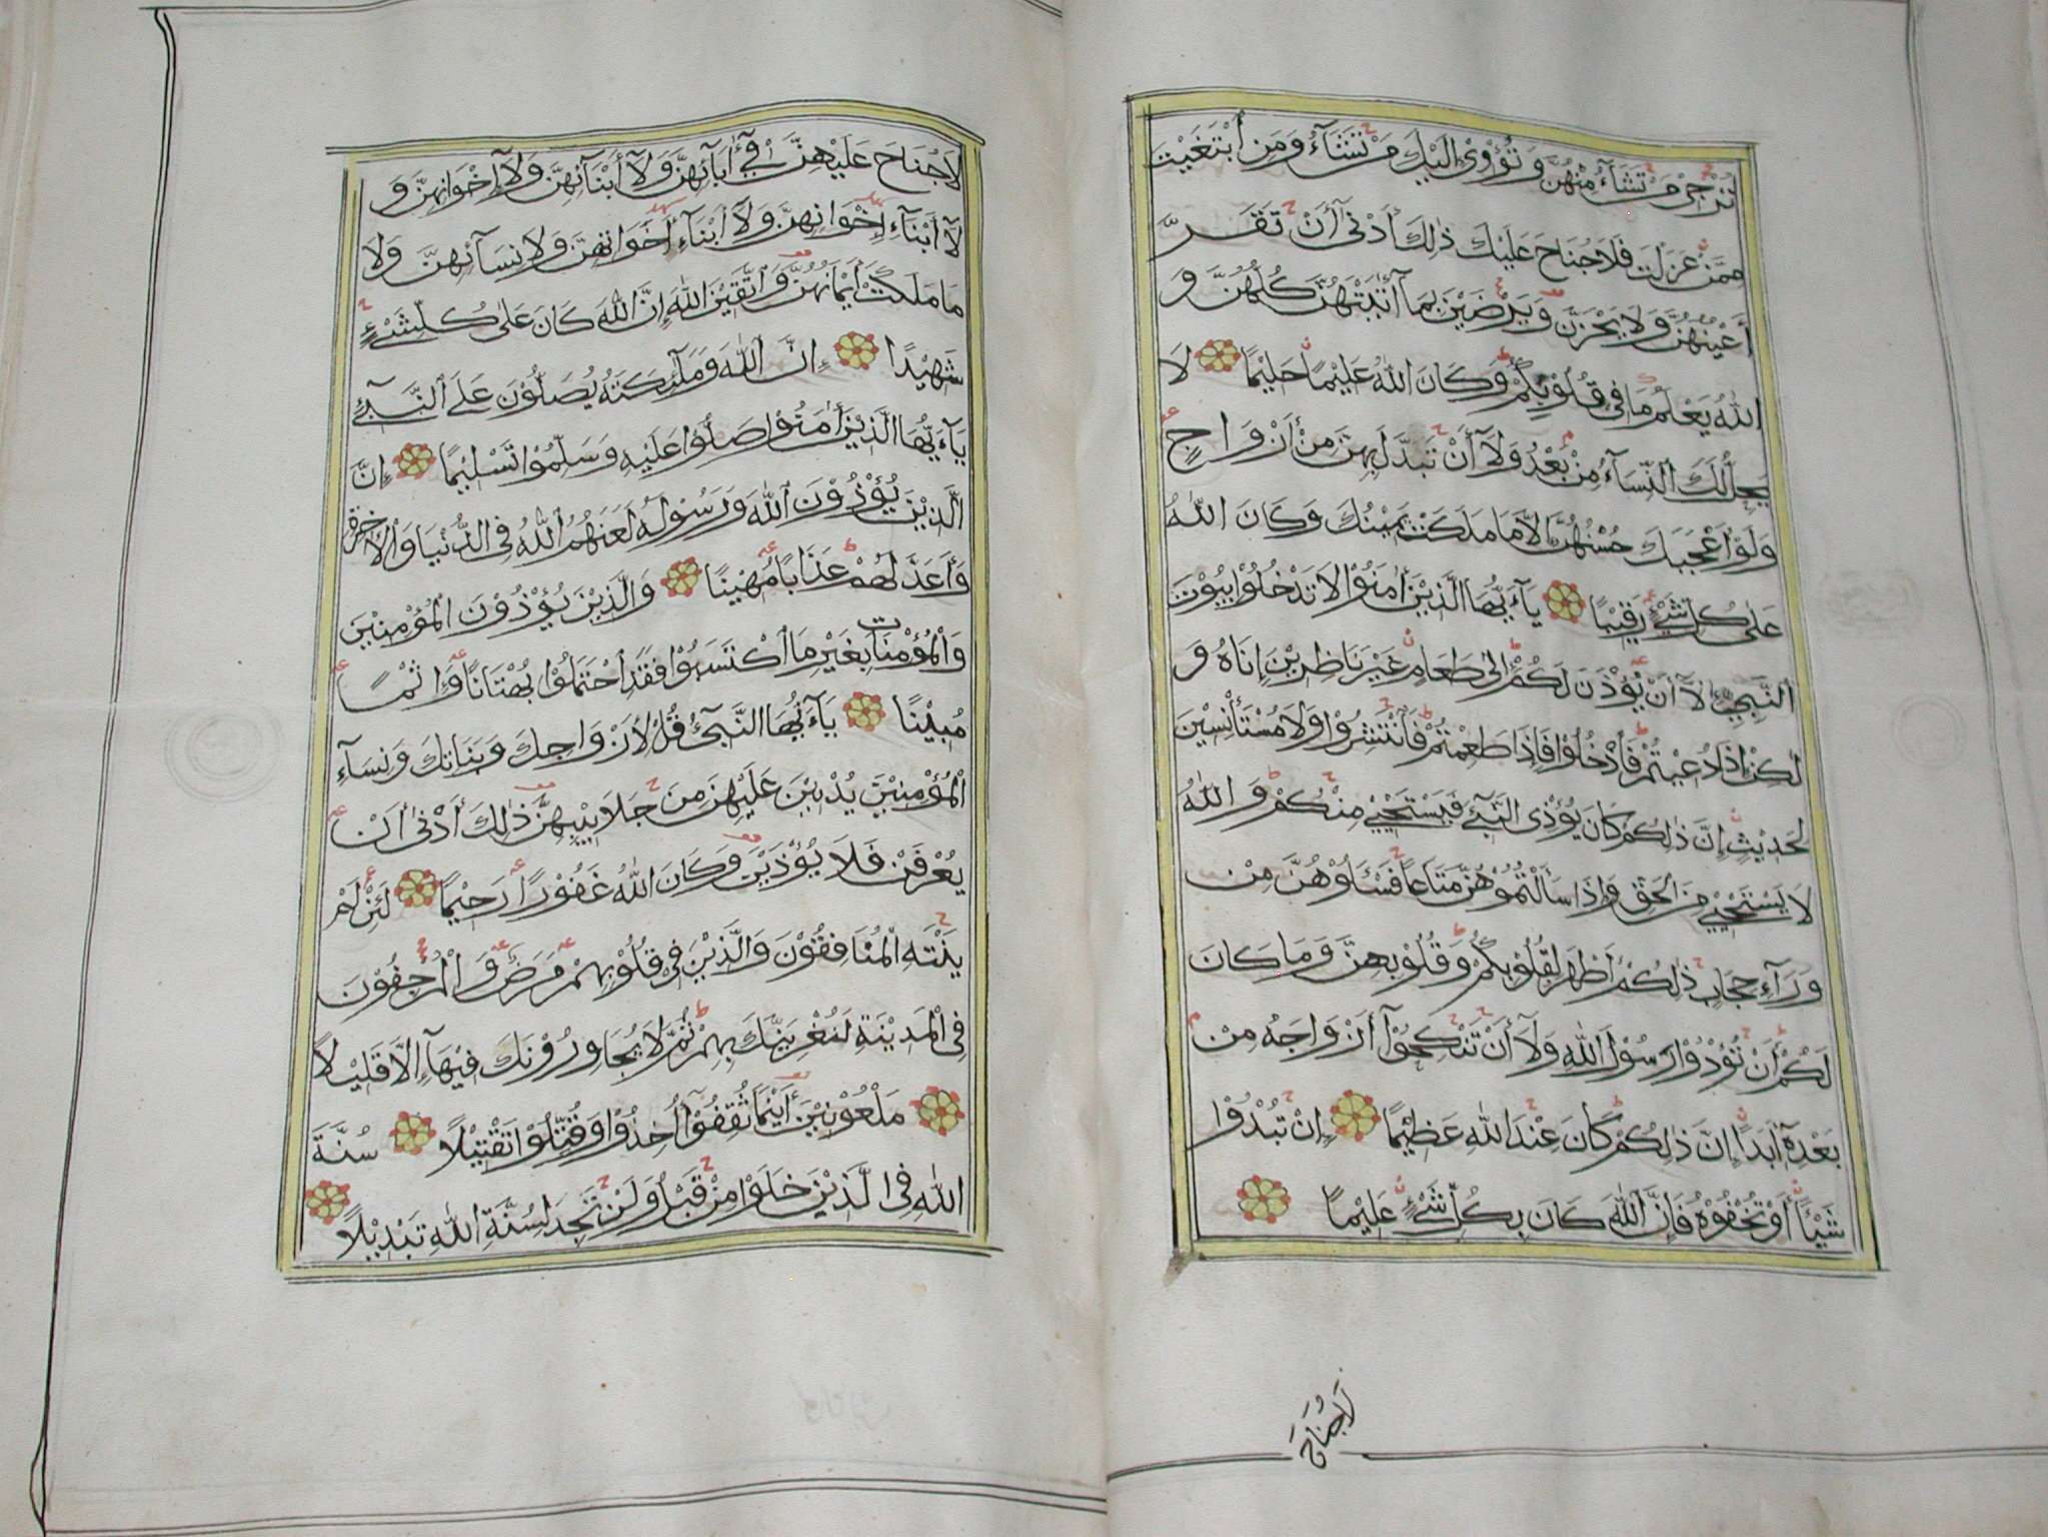 تُرْجِيْ مَنْ تَشَآءُ مِنْهُنَّ وَتُؤْوِيْ إِلَيْكَ مَنْ تَشَآءُ وَمَنِ ابْتَغَيْتَ
مِمَّنْ عَزَلْتَ فَلَا جُنَاحَ عَلَيْكَ ذٰلِكَ أَدْنٰى أَنْ تَقَرَّ
أَعْيُنُهُنَّ وَلَا يَحْزَنَّ وَيَرْضَيْنَ بِمَآ أٰتَيْتَهُنَّ كُلُّهُنَّ وَ
اللّٰهُ يَعْلَمُ مَا فِيْ قُلُوْبِكُمْ وَكَانَ اللّٰهُ عَلِيْمًا حَلِيْمًا لَا
يَحِلُّ لَكَ النِّسَآءُ مِنْ بَعْدُ وَلَآ أَنْ تَبَدَّلَ بِهِنَّ مِنْ أَزْوَاجٍ
وَلَوْ أَعْجَبَكَ حُسْنُهُنَّ إِلَّا مَا مَلَكَتْ يَمِيْنُكَ وَكَانَ اللّٰهُ
عَلٰى كُلِّ شَيْءٍ رَقِيْبًا يَآءَيُّهَا الَّذِيْنَ أٰمَنُوْا لَا تَدْخُلُوْا بُيُوْتَ
النَّبِيِّ إِلَّآ أَنْ يُؤْذَنَ لَكُمْ إِلٰى طَعَامٍ غَيْرَ نَاظِرِيْنَ إِنَاهُ وَ
لٰكِنْ إِذَا دُعِيْتُمْ فَادْخُلُوْا فَإِذَا طَعِمْتُمْ فَانْتَشِرُوْا وَلَا مُسْتَأْنِسِيْنَ
لِحَدِيْثٍ إِنَّ ذٰلِكُمْ كَانَ يُؤْذِى النَّبِيَّ فَيَسْتَحْيٖ مِنْكُمْ وَاللّٰهُ
لَا يَسْتَحْيٖ مِنَ الْحَقِّ وَإِذَا سَأَلْتُمُوْهُنَّ مَتَاعًا فَسْـَٔلُوْهُنَّ مِنْ
وَرَآءِ حِجَابٍ ذٰلِكُمْ أَطْهَرُ لِقُلُوْبِكُمْ وَقُلُوْبِهِنَّ وَمَا كَانَ
لَكُمْ أَنْ تُؤْذُوْا رَسُوْلَ اللّٰهِ وَلَآ أَنْ تَنْكِحُوْآ أَزْوَاجَهُ مِنْ
بَعْدِهٖٓ أَبَدًا إِنَّ ذٰلِكُمْ كَانَ عِنْدَ اللّٰهِ عَظِيْمًا إِنْ تُبْدُوْا
شَيْـًٔا أَوْ تُخْفُوْهُ فَإِنَّ اللّٰهَ كَانَ بِكُلِّ شَيْءٍ عَلِيْمًا
لَاجُنَاحَ
لَا جُنَاحَ عَلَيْهِنَّ فِيْٓ أٰبَآئِهِنَّ وَلَآ أَبْنَآئِهِنَّ وَلَآ إِخْوَانِهِنَّ وَ
لَآ أَبْنَآءِ إِخْوَانِهِنَّ وَلَآ أَبْنَآءِ أَخَوَاتِهِنَّ وَلَا نِسَآئِهِنَّ وَلَا
مَا مَلَكَتْ أَيْمَانُهُنَّ وَاتَّقِيْنَ اللّٰهَ إِنَّ اللّٰهَ كَانَ عَلٰى كُلِّ شَيْءٍ
شَهِيْدًا إِنَّ اللّٰهَ وَمَلٰٓئِكَتَهُ يُصَلُّوْنَ عَلَى النَّبِيِّ
يَآءَيُّهَا الَّذِيْنَ أٰمَنُوْا صَلُّوْا عَلَيْهِ وَسَلِّمُوْا تَسْلِيْمًا إِنَّ
الَّذِيْنَ يُؤْذُوْنَ اللّٰهَ وَرَسُوْلَهُ لَعَنَهُمُ اللّٰهُ فِى الدُّنْيَا وَالْاٰخِرَةِ
وَأَعَدَّ لَهُمْ عَذَابًا مُهِيْنًا وَالَّذِيْنَ يُؤْذُوْنَ الْمُؤْمِنِيْنَ
وَالْمُؤْمِنَاتِ بِغَيْرِ مَا اكْتَسَبُوْا فَقَدِ احْتَمَلُوْا بُهْتَانًا وَإِثْمًا
مُبِيْنًا يَآءَيُّهَا النَّبِيُّ قُلْ لِأَزْوَاجِكَ وَبَنَاتِكَ وَنِسَآءِ
الْمُؤْمِنِيْنَ يُدْنِيْنَ عَلَيْهِنَّ مِنْ جَلَابِيْبِهِنَّ ذٰلِكَ أَدْنٰى أَنْ
يُعْرَفْنَ فَلَا يُؤْذَيْنَ وَكَانَ اللّٰهُ غَفُوْرًا رَحِيْمًا لَئِنْ لَمْ
يَنْتَهِ الْمُنَافِقُوْنَ وَالَّذِيْنَ فِيْ قُلُوْبِهِمْ مَرَضٌ وَالْمُرْجِفُوْنَ
فِى الْمَدِيْنَةِ لَنُغْرِيَنَّكَ بِهِمْ ثُمَّ لَا يُجَاوِرُوْنَكَ فِيْهَآ إِلَّا قَلِيْلًا
مَلْعُوْنِيْنَ أَيْنَمَا ثُقِفُوْٓا أُخِذُوْا وَقُتِّلُوْا تَقْتِيْلًا سُنَّةَ
اللّٰهِ فِى الَّذِيْنَ خَلَوْا مِنْ قَبْلُ وَلَنْ تَجِدَ لِسُنَّةِ اللّٰهِ تَبْدِيْلًا